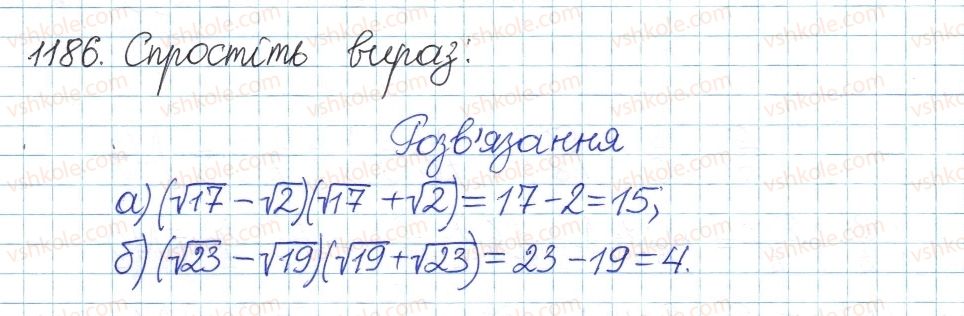 1186. Спростіть вираз:
Розв'язання
а) (√17 − √2)(√17 + √2) = 17 − 2 = 15;
б) (√23 − √19)(√19 + √23) = 23 − 19 = 4.